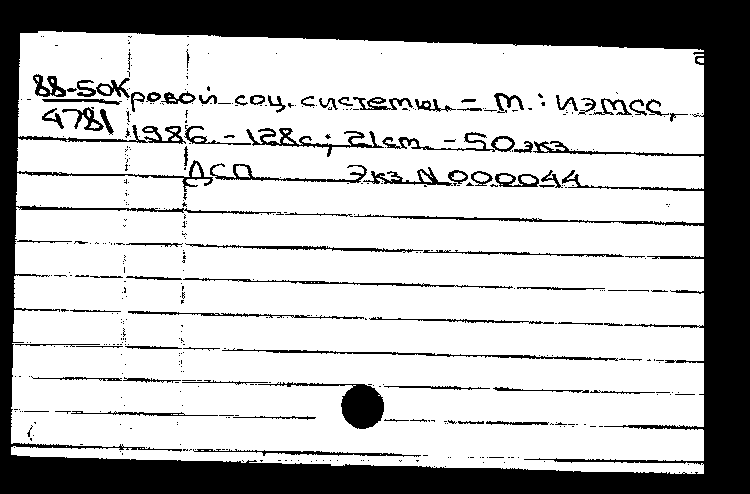 88-50К ровой соц. системы. - М.: ИЭМСС,
4781 1986. - 128с.; 21см. - 50 экз
ДСП Экз. N 000044